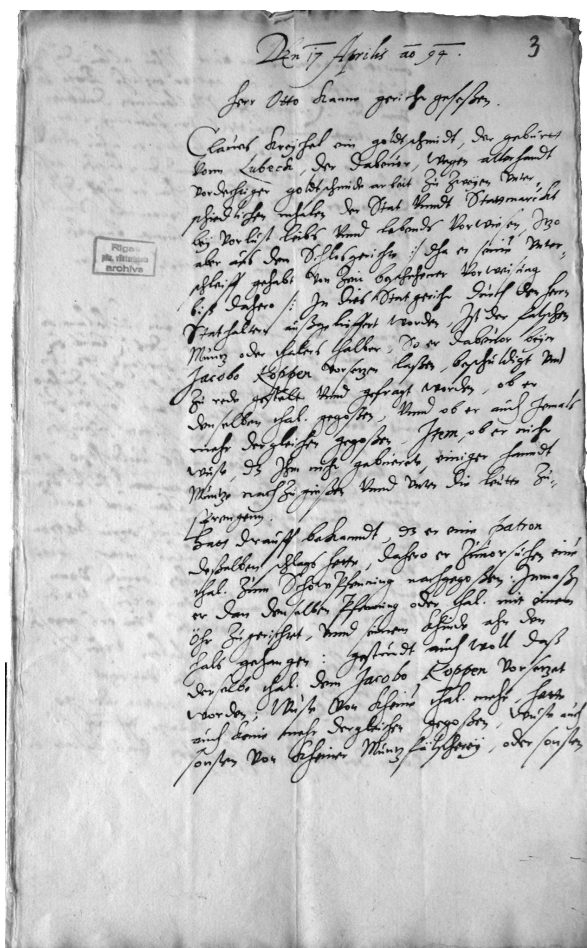 Den 17 Aprilis ao 94.
3
Herr Otto Kanne gericht geseßen.
Claues Kreÿhel ein goldtschmidt, der gebürt
vonn Lubeck, der dabeuor, wegen allerhandt
verdechtiger goldtschmide arbeit zu zweÿen vnter-
schiedtlichen mhalen der Stat vnndt Stadtmarckt
beÿ verlust leibs vnnd lebends verwiesen, Itzo
aber aus dem Schlosgerichte :/ dha er seine vnter-
schleiff gehabt von Zeit beschehener verweisung
biß dahero :/ In dies Stat gericht durch den herrn
Stathalter außgelieffert worden, Ist der falschen
Müntz oder thalers halber, so er dabeuor beÿm
Jacobo Koppen versetzen laßen, beschuldigt vnd
zu rede gestält vnnd gefragt worden, ob er
denselben thal. gegoßen, vnnd ob er auch jemals
mehr dergleichen gegoßen, Item, ob er nicht
wust, dz Ihm nicht gebüret, einiger handt
Müntze nach zu gießen vnnd vnter die leute zu-
sprengenn.
Hatt drauff bekanndt, dz er eine patron
deßelben schlags hette, dahero er zuuor sichen eine
thal. zum Schowpfenning nachgegoßen. Inmaßen
er dan denselben Pfenning oder thal. mit einem
Öhr zugerichtet, vnnd seinem Kinde ahn den
hals gehangen : gestundt auch woll daß
derselbe thal. dem Jacobo Koppen versetzet
worden, Wüste von kheine thal. mehr, hette
auch keine mehr dergleichen gegoßen, wuste auch
sonsten von kheiner Müntz felscherey, oder sonsten
Rigas
archivs